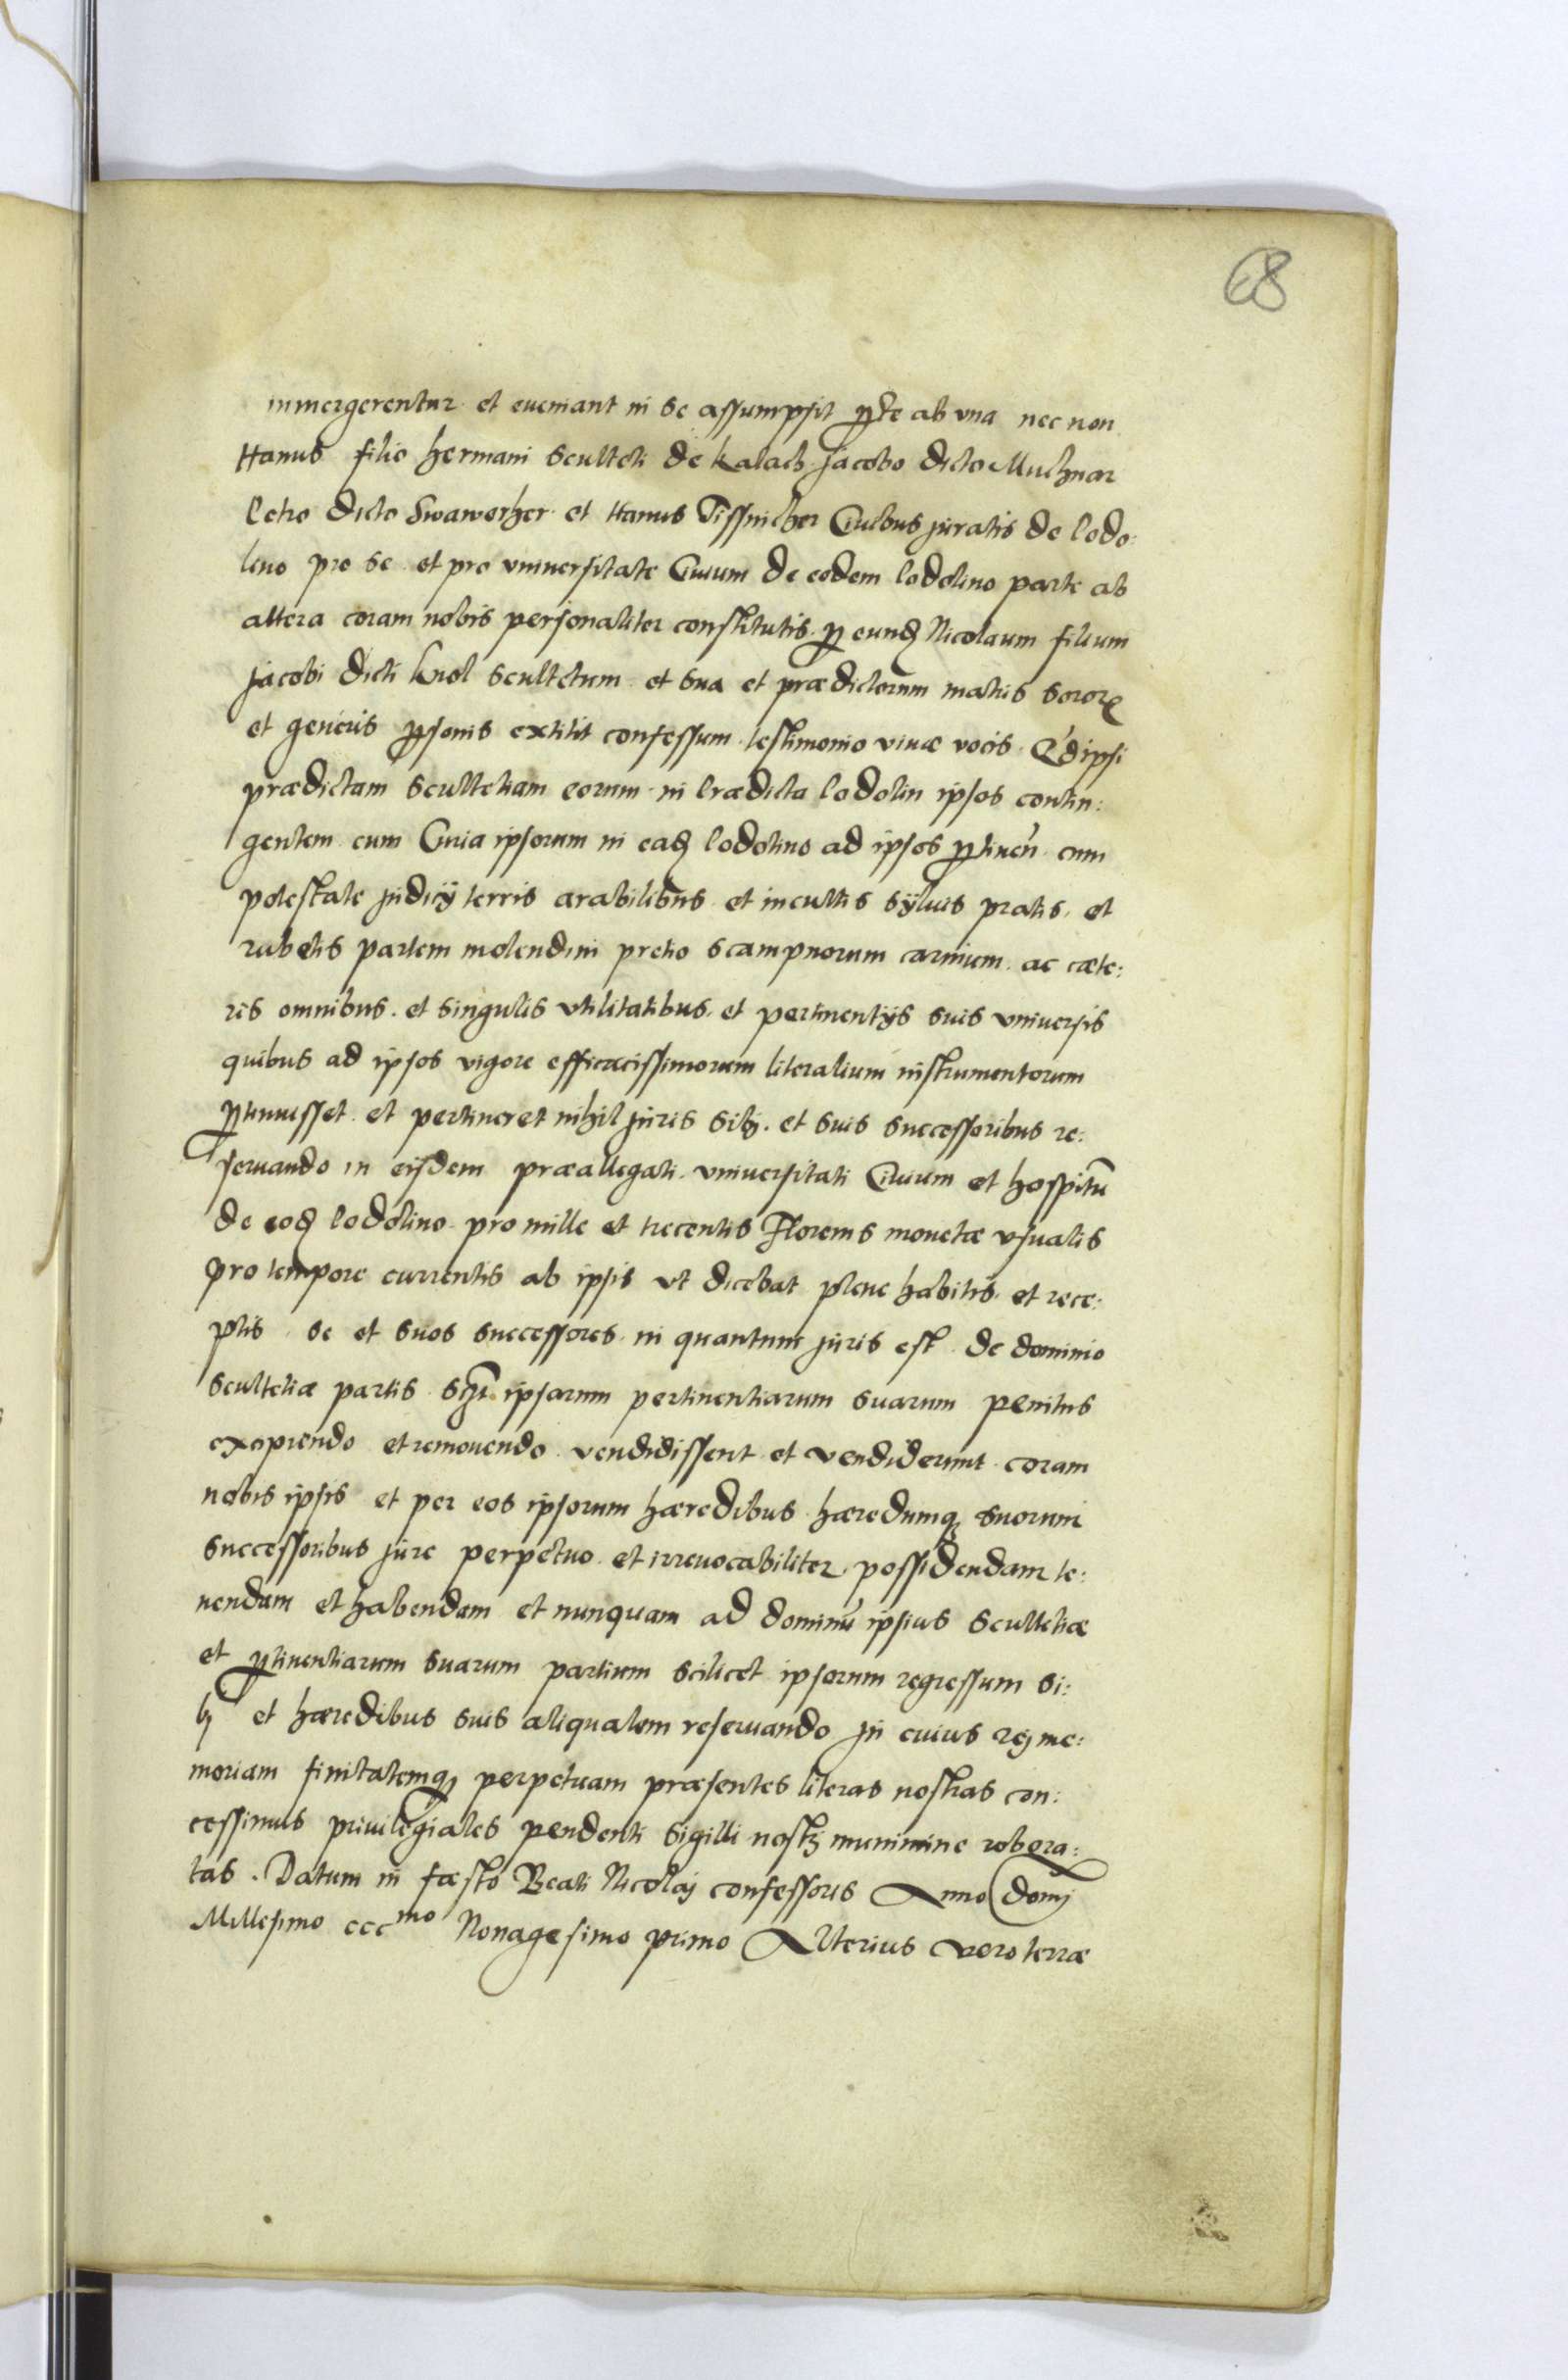 68
inmergerentur et eueniant in se assumpsit parte ab vna nec non
Hanus filio hermani sculteti de kalach Jacobo dicto Muchnar
Petro dicto Swaworher et Hanus Tissnicher Ciuibus juratis de Podo:
lino pro se et pro vniuersitate Ciuium de eodem Podolino parte ab
altera coram nobis personaliter constitutis p eund Nicolaum filium
Jacobi dicti Knol scultetum et sua et prædictorum matris soror
et generis psonis extitit confessum testimonio viuæ vocis Qd ipsi
prædictam scultetiam eorum in Prædicta Podolin ipsos contin:
gentem cum Curia ipsorum in ead Podolino ad ipsos ptinen cum
potestate judicij terris arabilibus et incultis syluis pratis et
rubetis partem molendini pretio scampnorum carnium ac cæte:
ris omnibus et singulis vtilitatibus et pertinentijs suis vniuersis
quibus ad ipsos vigore efficacissimorum literalium instrumentorum
ptinuisset et pertineret nihil juris sibj et suis successoribus re:
seruando in eisdem præallegati vniuersitati Ciuium et hospitū
de eod Podolino pro mille et trecentis Florenis monetæ vsualis
pro tempore currentis ab ipsis vt dicebat plene habitis et rece:
ptis se et suos successores in quantum juris est de dominio
scultetiæ partis ipsarum pertinentiarum suarum penitus
et remouendo vendidissent et vendiderunt coram
nobis ipsis et per eos ipsorum hæredibus hæredumq suorum
successoribus jure perpetuo et irreuocabiliter possidendam te:
nendam et habendam et nunquam ad dominiū ipsius scultetiæ
et ptinentiarum suarum partium scilicet ipsorum regressum si:
bj et hæredibus suis aliqualem reseruando Jn cuius rej me:
moriam firmitatemq perpetuam præsentes literas nostras con:
cessimus priuilegiales pendenti sigilli nostrj munimine robora:
tas. Datum in fæsto Beati Nicolaj confessoris Anno domj
Millesimo ccc^mo Nonagesimo primo Alterius vero terræ